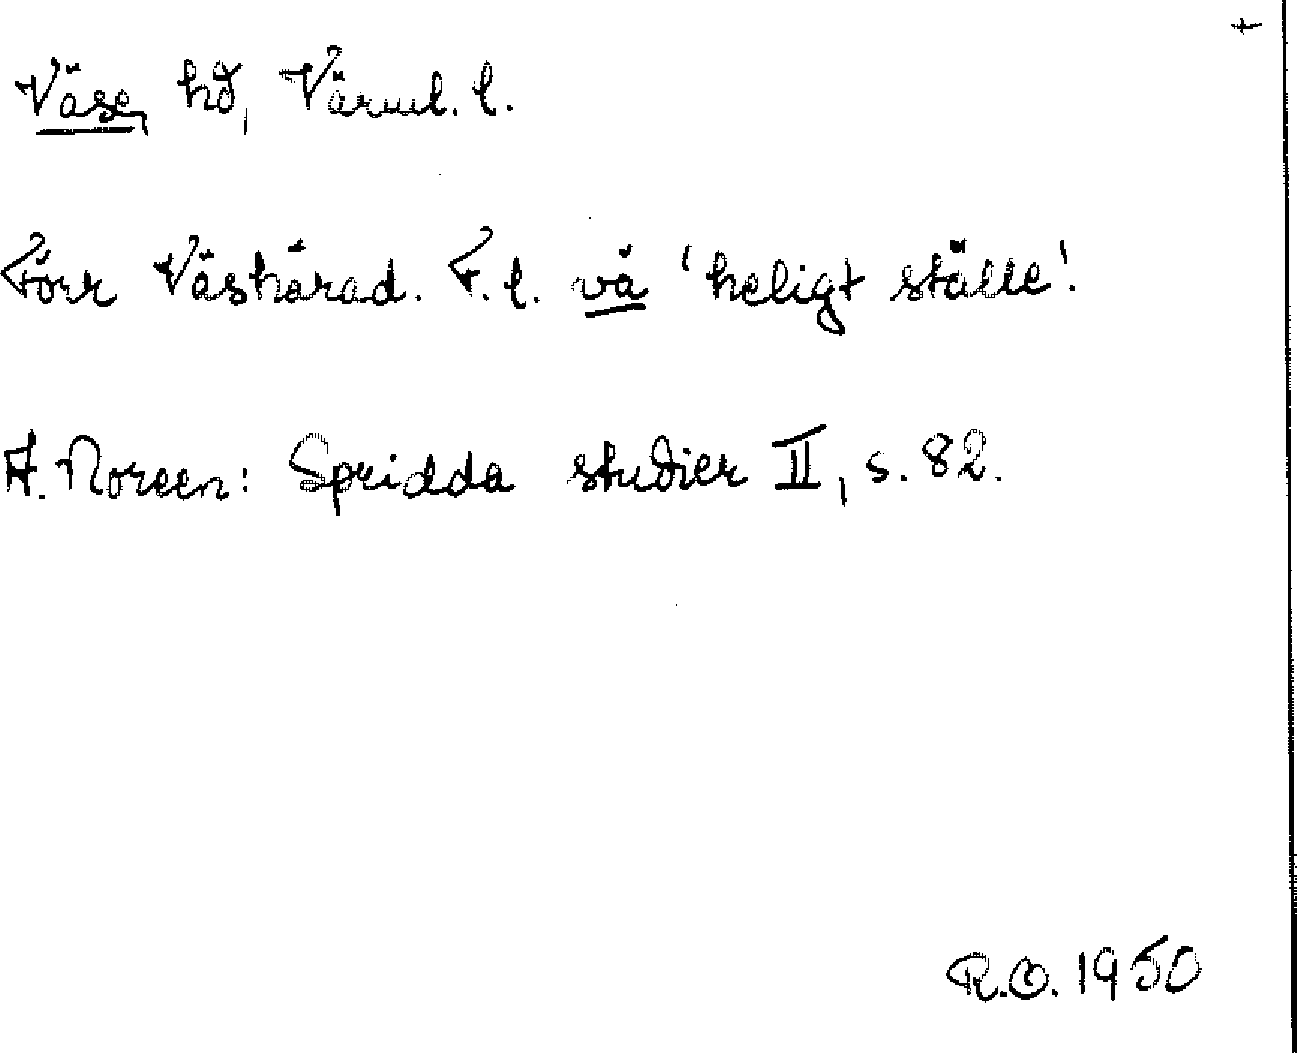 +
Väse, hd, Värml. l.
Förr Väshärad. F. l. vä 'heligt ställe'.
A. Noreen: Spridda studier II, s. 82.
R.O. 1950